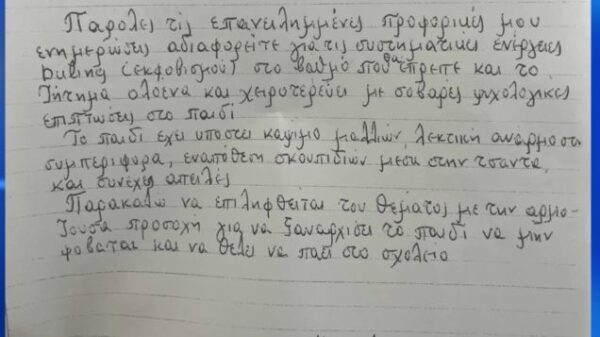 Παρόλες τις επανειλημμένες προφορικές μου
ενημερώσεις αδιαφορείτε για τις συστηματικές ενέργειες
buling (εκφοβισμού) στο βαθμό που θα έπρεπε και το
ζήτημα ολοένα και χειροτερεύει με σοβαρές ψυχολογικές
επιπτώσεις στο παιδί
Το παιδί έχει υποστεί κάψιμο μαλλιών, λεκτική αναρμοστη
συμπεριφορα, εναπόθεση σκουπιδιών μεσα στην τσαντα,
και συνεχες απειλές
Παρακαλώ να επιληφθείται του θέματος με την αρμο-
ζουσα προσοχή για να ξαναρχίσει το παιδί να μην
φοβαται και να θελει να παει στο σχολείο